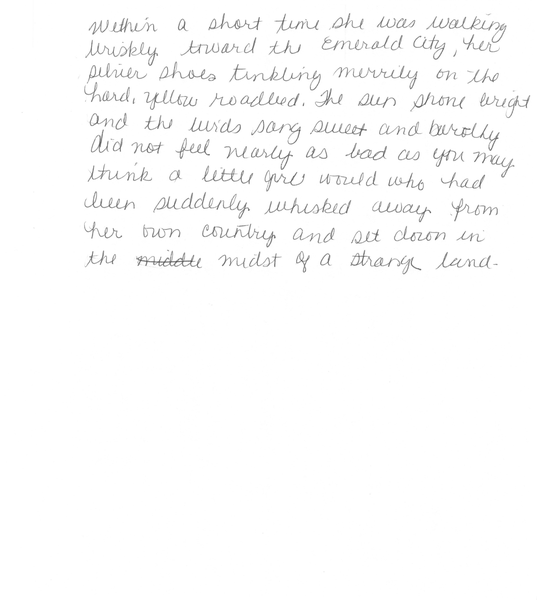 Within a short time she was walking
briskly toward the Emerald City, her
silver shoes tinkling merrily on the
hard, yellow roadbed. The sun shone bright
and the birds sang sweet and Dorothy
did not feel nearly as bad as you may
think a little girl would who had
been suddenly whisked away from
her own country and set down in
the middle midst of a strange land.